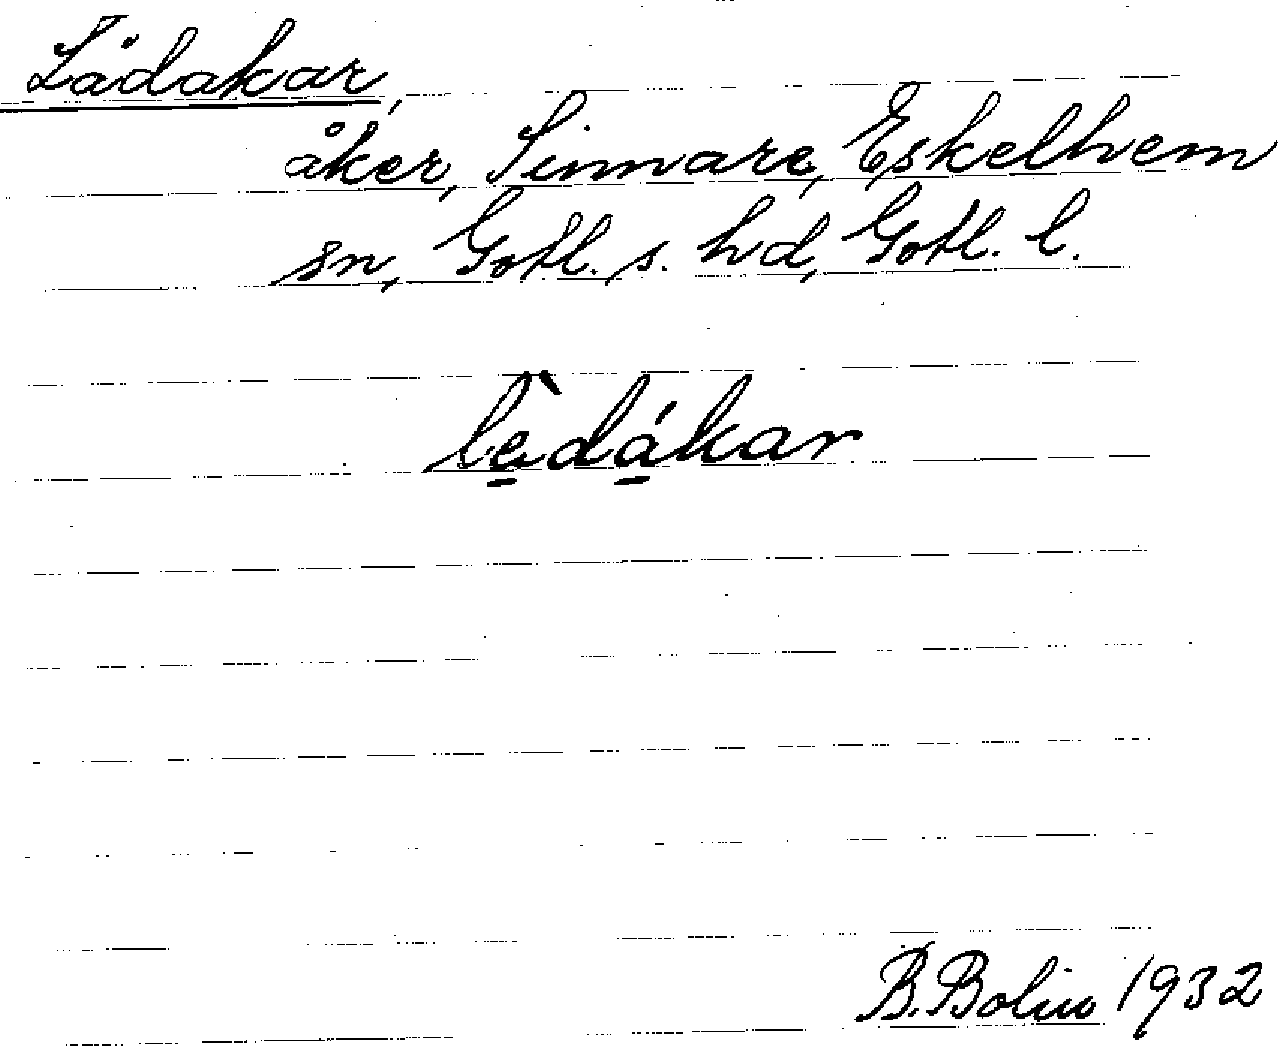 Lädakar,
åker, Simmare, Eskelhem
sn, Gotl. s. hd, Gotl. l.
lèdákar
B. Bolin 1932